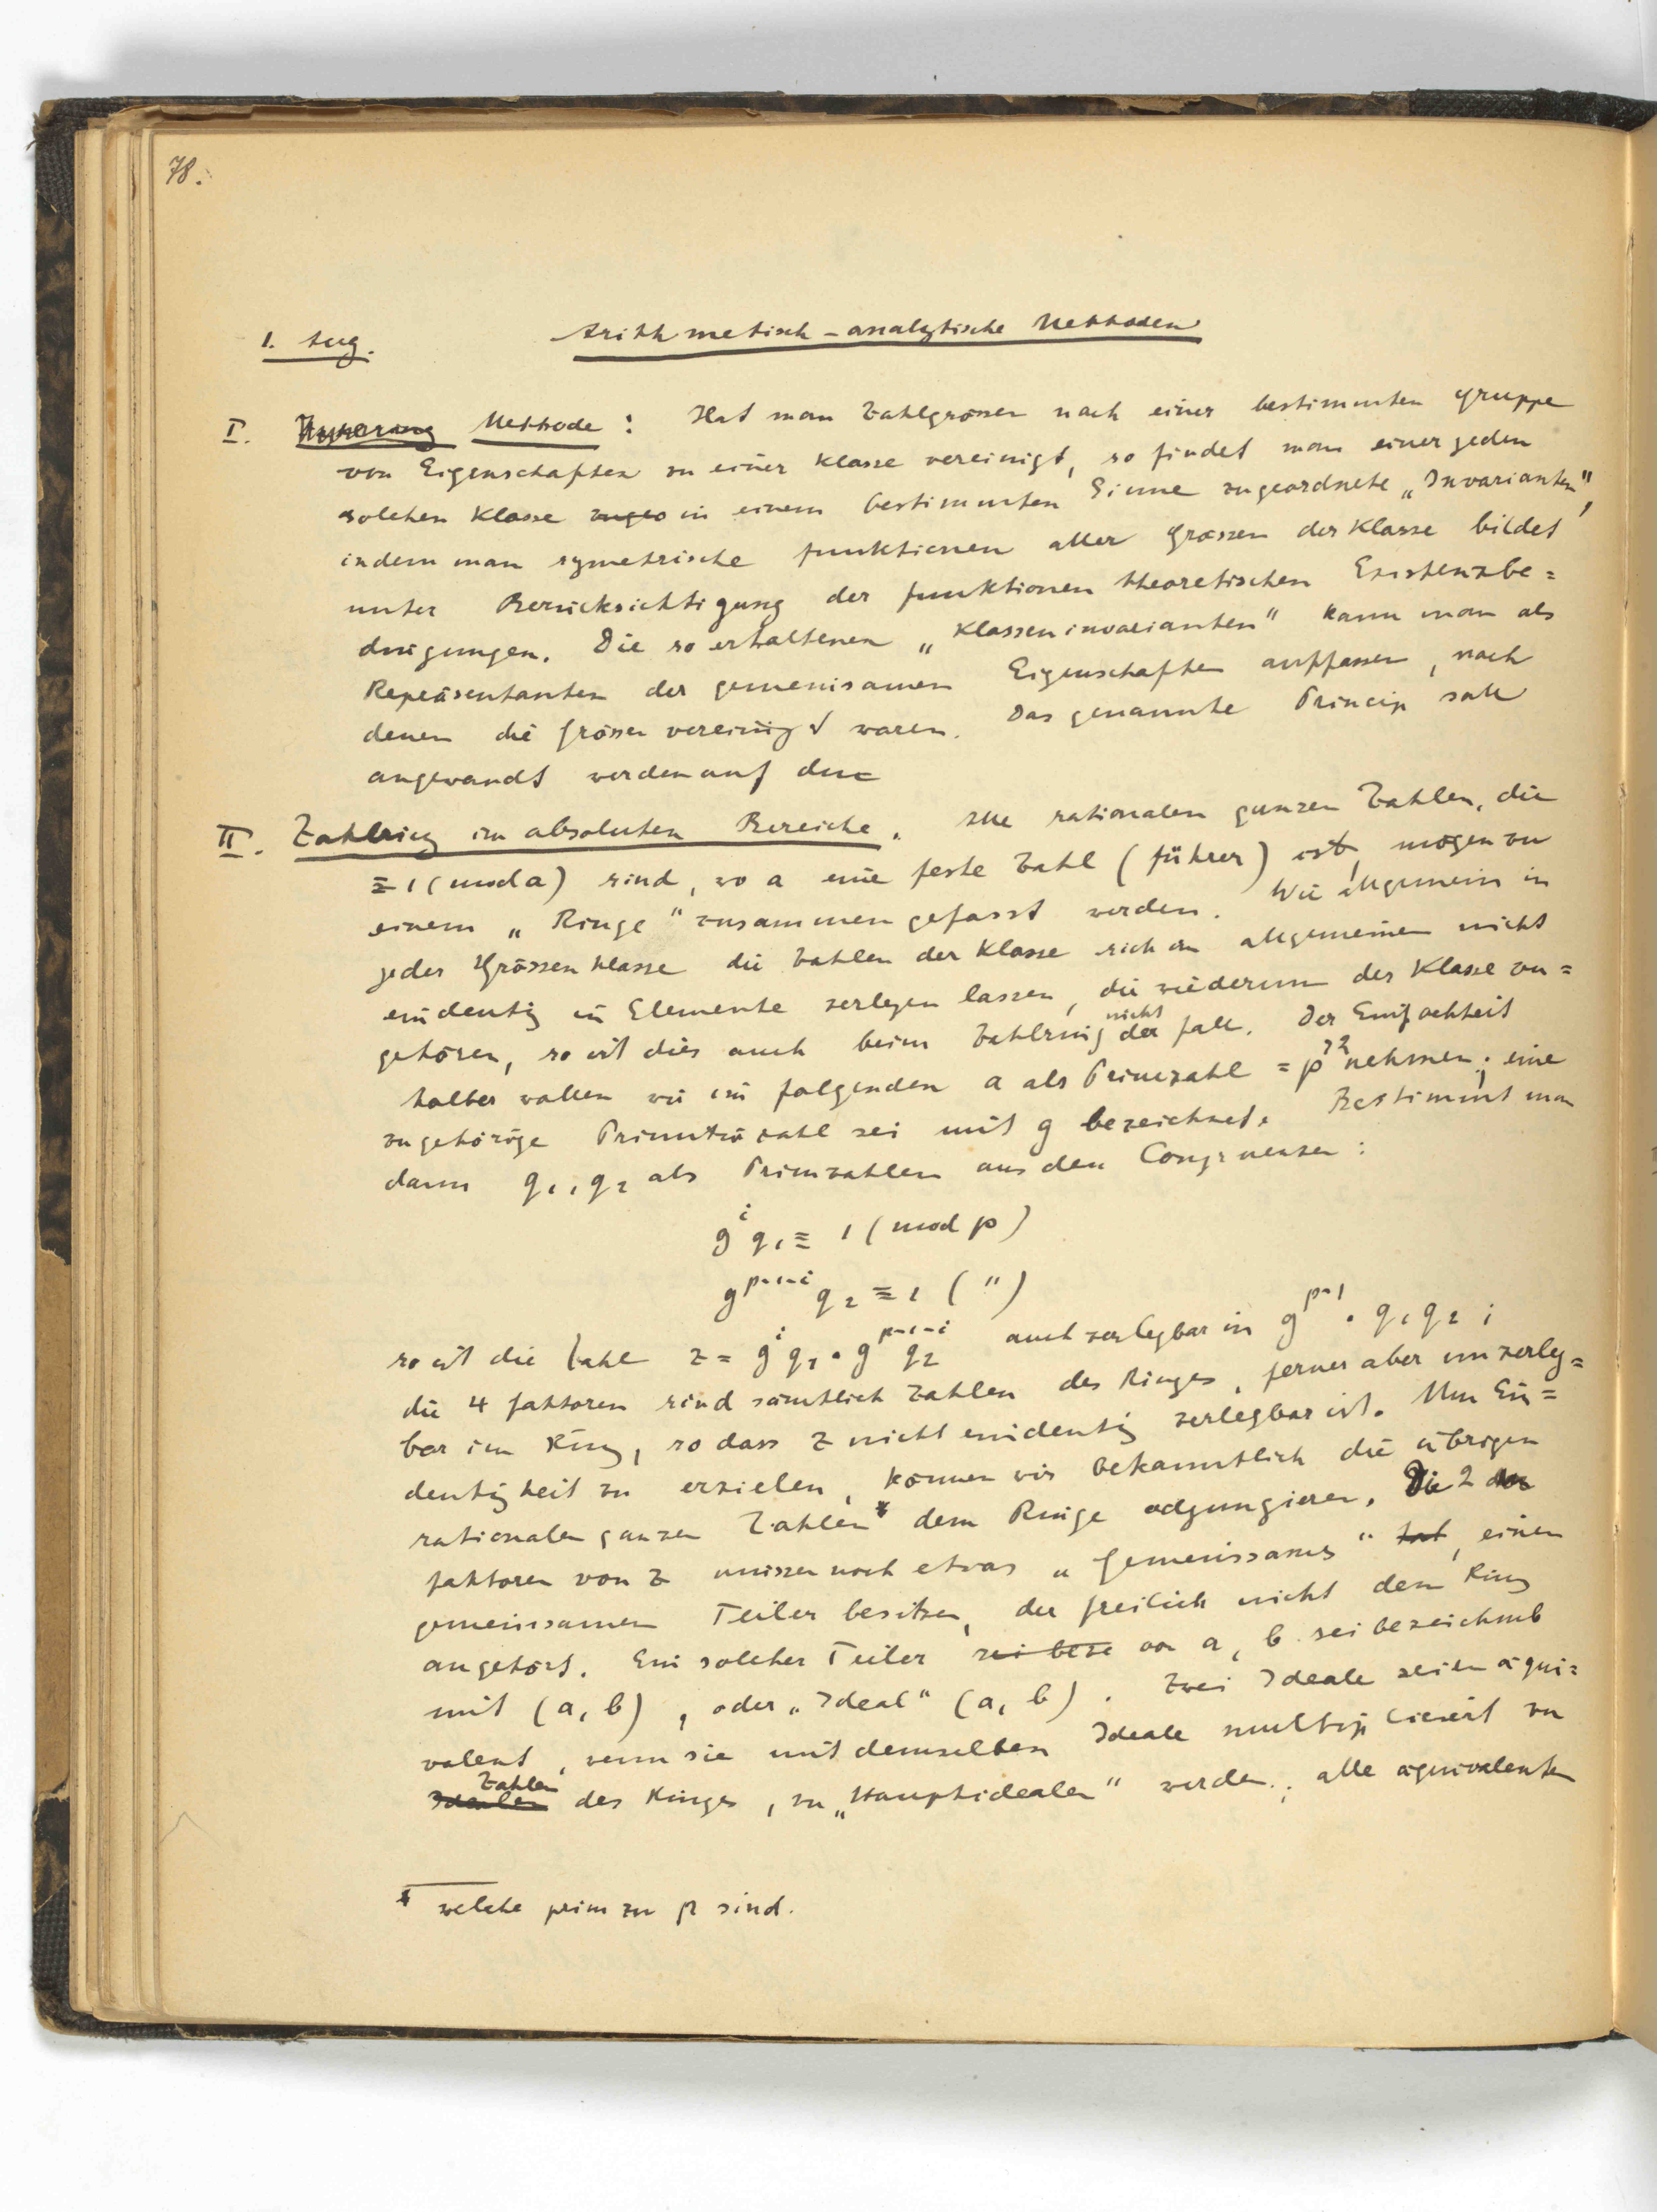 78.
1. Aug.
Arithmetisch-analytische Methoden
I. Methode: Hat man Zahlgrössen nach einer bestimmten Gruppe
von Eigenschaften zu einer Klasse vereinigt, so findet man einer jeden
solchen Klasse zugeo in einem bestimmten Sinne zugeordnete „Invarianten",
indem man symetrische Funktionen aller Grössen der Klasse bildet
unter Berücksichtigung der funktionentheoretischen Existenzbe=
dingungen. Die so erhaltenen „Klasseninvarianten" kann man als
Repräsentanten der gemeinsamen Eigenschaften auffassen, nach
denen die Grössen vereinigt waren. Das genannte Princip soll
angewandt werden auf den
II. Zahlring im absoluten Bereiche. Alle rationalen ganzen Zahlen, die
≡ 1 (mod a) sind, wo a eine feste Zahl (Führer) ist, mögen zu
einem „Ringe" zusammengefasst werden. Wie allgemein in
jeder Grössenklasse die Zahlen der Klasse sich im allgemeinen nicht
eindeutig in Elemente zerlegen lassen, die wiederum der Klasse an=
gehören, so ist dies auch beim Zahlring nicht der Fall. Der Einfachheit
halber wollen wir im folgenden a als Primzahl = p nehmen; eine
zugehörige Primitivzahl sei mit g bezeichnet. Bestimmt man
dann q₁, q₂ als Primzahlen aus den Congruenzen:
gⁱ q₁ ≡ 1 (mod p)
g^{p-1-i} q₂ ≡ 1 (")
so ist die Zahl z = gⁱ q₁ · g^{p-1-i} q₂ auch zerlegbar in g^{p-1} · q₁ q₂;
die 4 Faktoren sind sämtlich Zahlen des Ringes, ferner aber unzerleg=
bar im Ring, so dass z nicht eindeutig zerlegbar ist. Um Ein=
deutigkeit zu erzielen, können wir bekanntlich die übrigen
rationalen ganzen Zahlen* dem Ringe adjungieren. Die 2
Faktoren von z müssen noch etwas „Gemeinsames" hat, einen
gemeinsamen Teiler besitzen, der freilich nicht dem Ring
angehört. Ein solcher Teiler sei beze von a, b sei bezeichnet
mit (a, b), oder „Ideal" (a, b). Zwei Ideale seien äqui=
valent, wenn sie mit demselben Ideale multipliciert zu
Idealen Zahlen des Ringes, zu „Hauptidealen" werden; alle äquivalenten
* welche prim zu p sind.